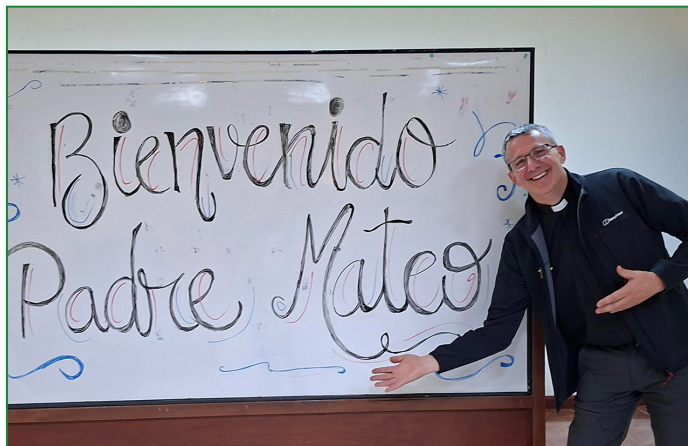 Bienvenido
Padre Mateo